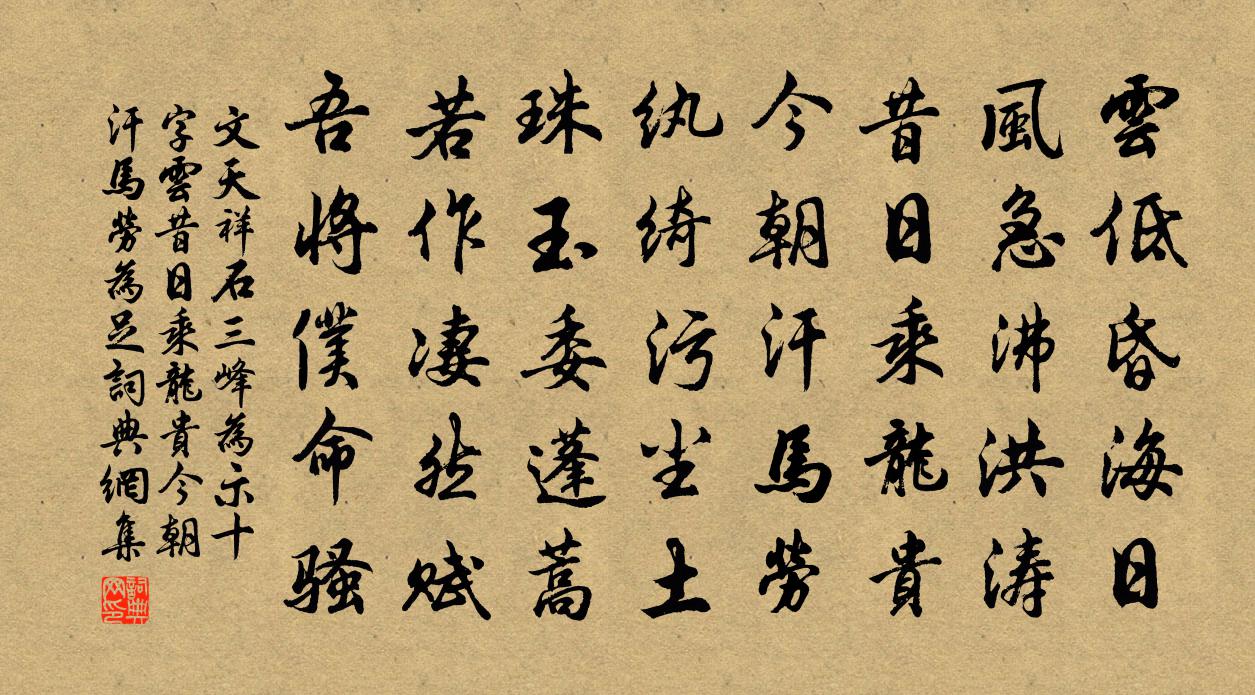 雲低昏海日
風急沸洪濤
昔日乘龍貴
今朝汗馬勞
紈綺污尘土
珠玉委蓬蒿
若作淒然賦
吾將僕命騷
文天祥石三峰為示十
字雲昔日乘龍貴今朝
汗馬勞為足詞典網集
詞典
网印